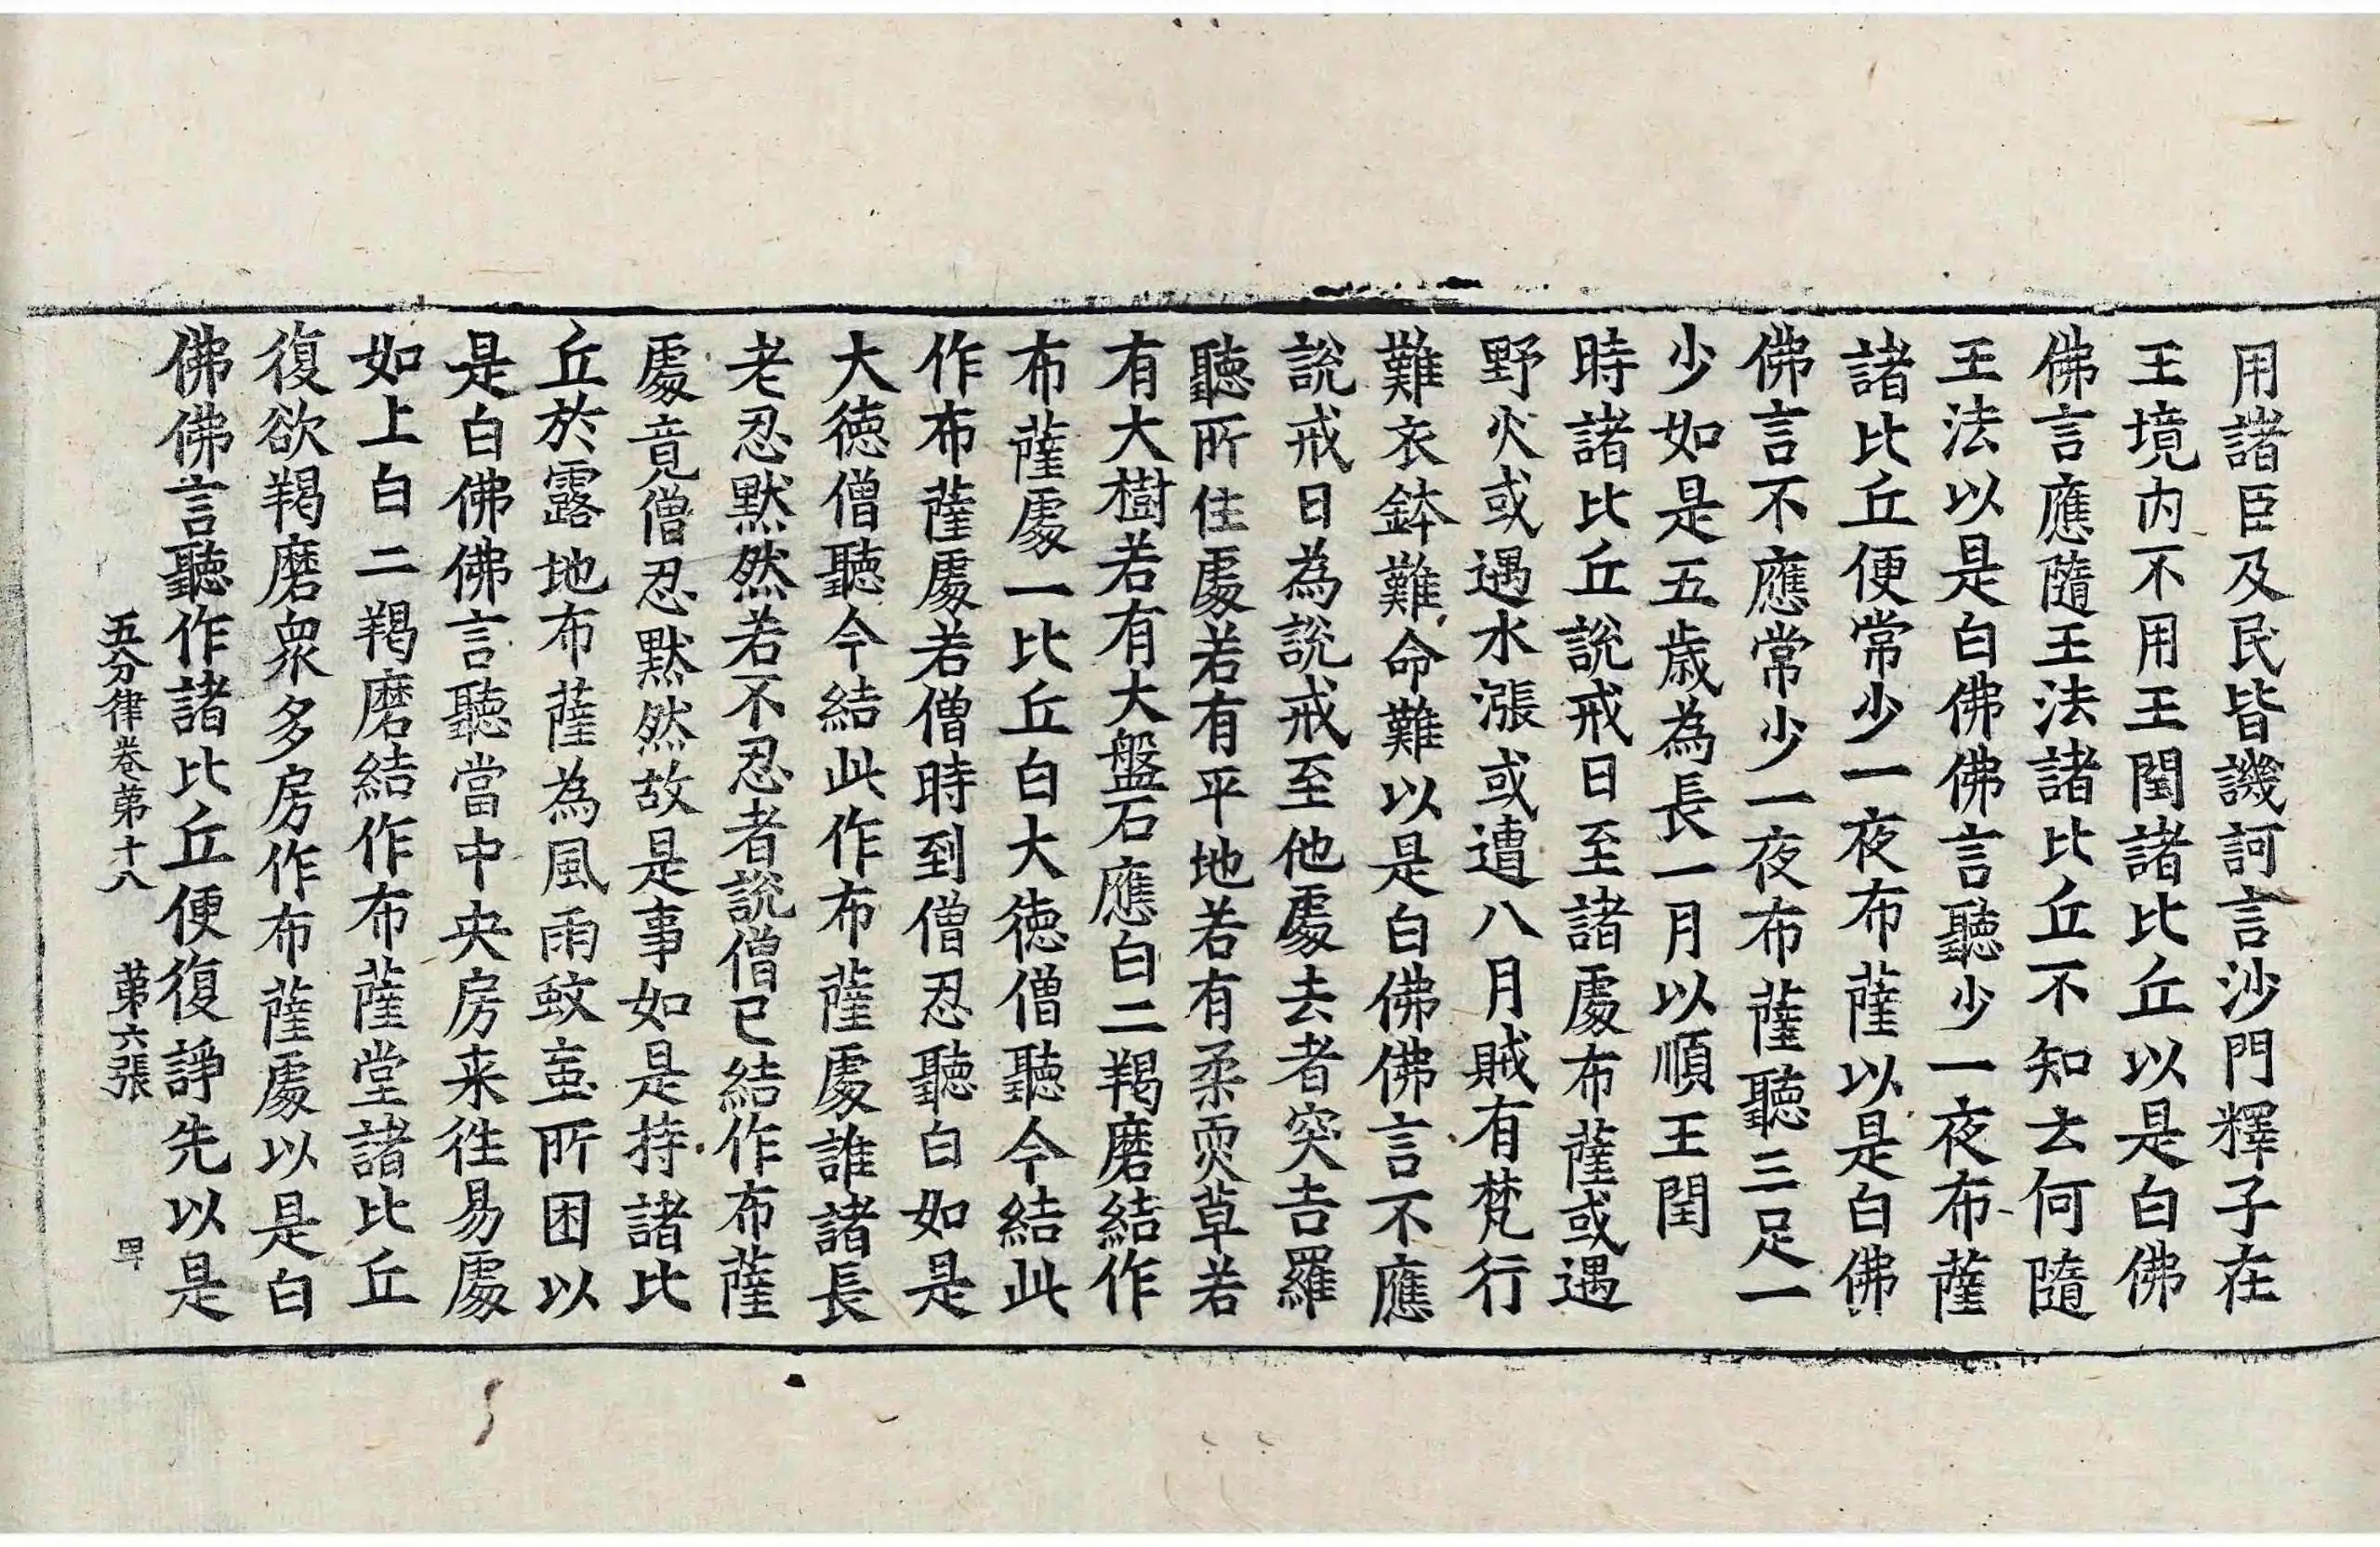 用諸臣及民皆譏訶言沙門釋子在
王境内不用王閏諸比丘以是白佛
佛言應隨王法諸比丘不知去何隨
王法以是白佛佛言聽少一夜布薩
諸比丘便常少一夜布薩以是白佛
佛言不應常少一夜布薩聽三足一
少如是五歲為長一月以順王閏
時諸比丘說戒日至諸處布薩或遇
野火或遇水漲或遭八月賊有梵行
難衣鉢難命難以是白佛佛言不應
說戒日為說戒至他處去者突吉羅
聽所住處若有平地若有柔耎草若
有大樹若有大盤石應白二羯磨結作
布薩處一比丘白大德僧聽今結此
作布薩處若僧時到僧忍聽白如是
大德僧聽今結此作布薩處誰諸長
老忍默然若不忍者說僧已結作布薩
處竟僧忍默然故是事如是持諸比
丘於露地布薩為風雨蚊䖟所困以
是白佛佛言聽當中央房来往易處
如上白二羯磨結作布薩堂諸比丘
復欲羯磨衆多房作布薩處以是白
佛佛言聽作諸比丘便復諍先以是
五分律卷第十八 第六張